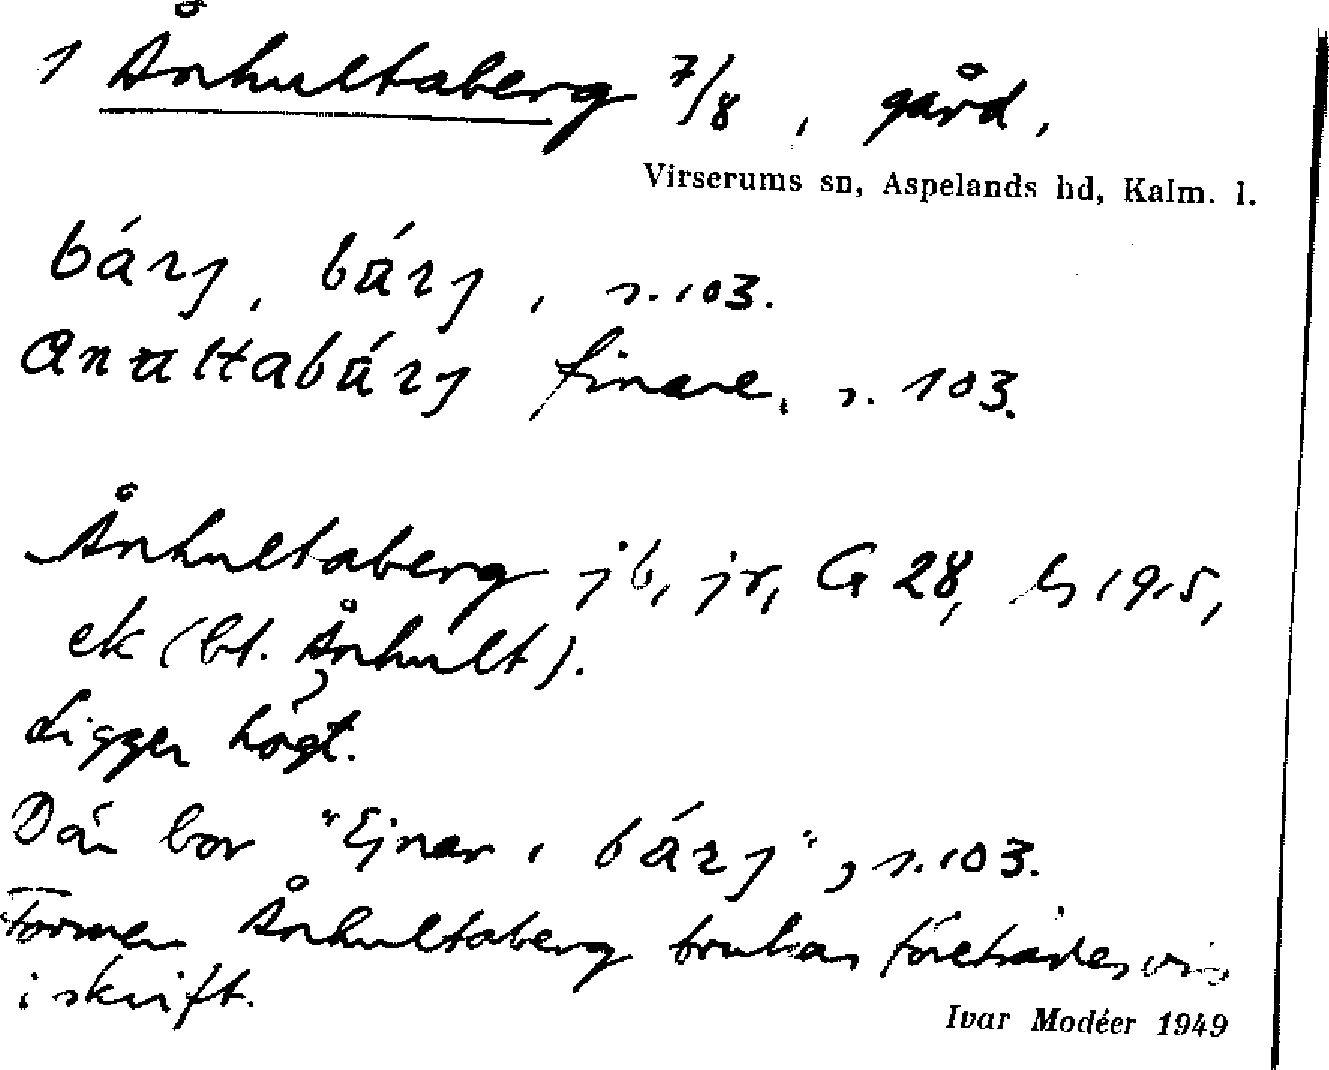 1 Ånhultaberg 7/8, gård,
Virserums sn, Aspelands hd, Kalm. l.
bárj, bárj, s. 103.
anultabárj finare, s. 103.
Ånhultaberg jb, jr, G 28, 1915,
ek (bt. Ånhult).
Ligger högt.
Där bor "Ejnar i bárj", s. 103.
Formen Ånhultaberg brukas företrädesvis
i skrift.
Ivar Modéer 1949